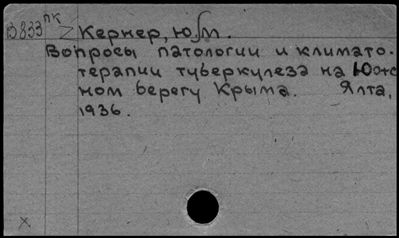 В833 ПК
Кернер, Ю. М.
Вопросы патологии и климато-
терапии туберкулеза на Южс
ном берегу Крыма. Ялта,
1936.
x